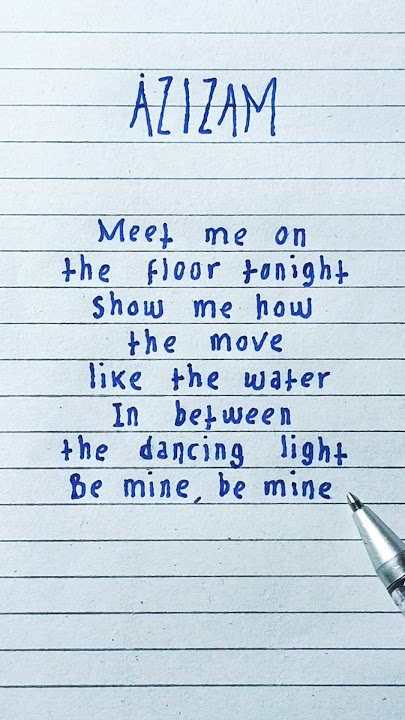 AZIZAM
Meet me on
the floor tonight
show me how
the move
like the water
In between
the dancing light
Be mine, be mine